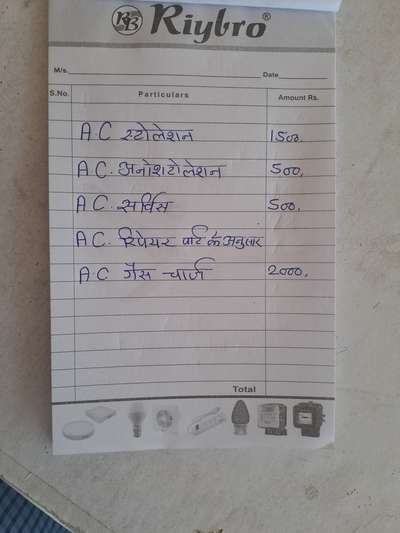 RB Riybro®
M/s. Date
S.No. Particulars Amount Rs.
A.C स्टोलेशन 1500.
A.C. अनोशटोलेशन 500.
A.C. सर्विस 500.
A.C. रिपेयर पार्ट के अनुसार
A C गैस चार्ज 2000.
Total